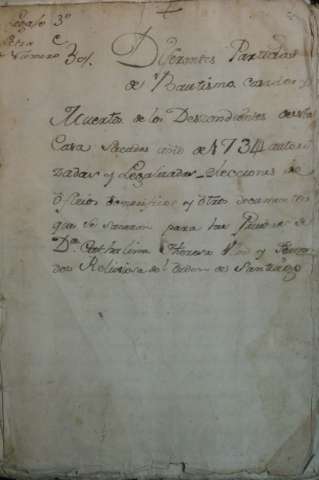 Legajo 3º
Letra C.
Numero 30%.
Diferentes Partidas
de Bautismo casados y
Muertos de los Descendientes de esta
Casa Sacadas año de 1734 autori
zadas y Legalizadas, elecciones de
oficios honorificos y otros documentos
que se sacaron para las Pruebas de
Dª Cathalina Theresa y
Religiosa del orden de Santiago